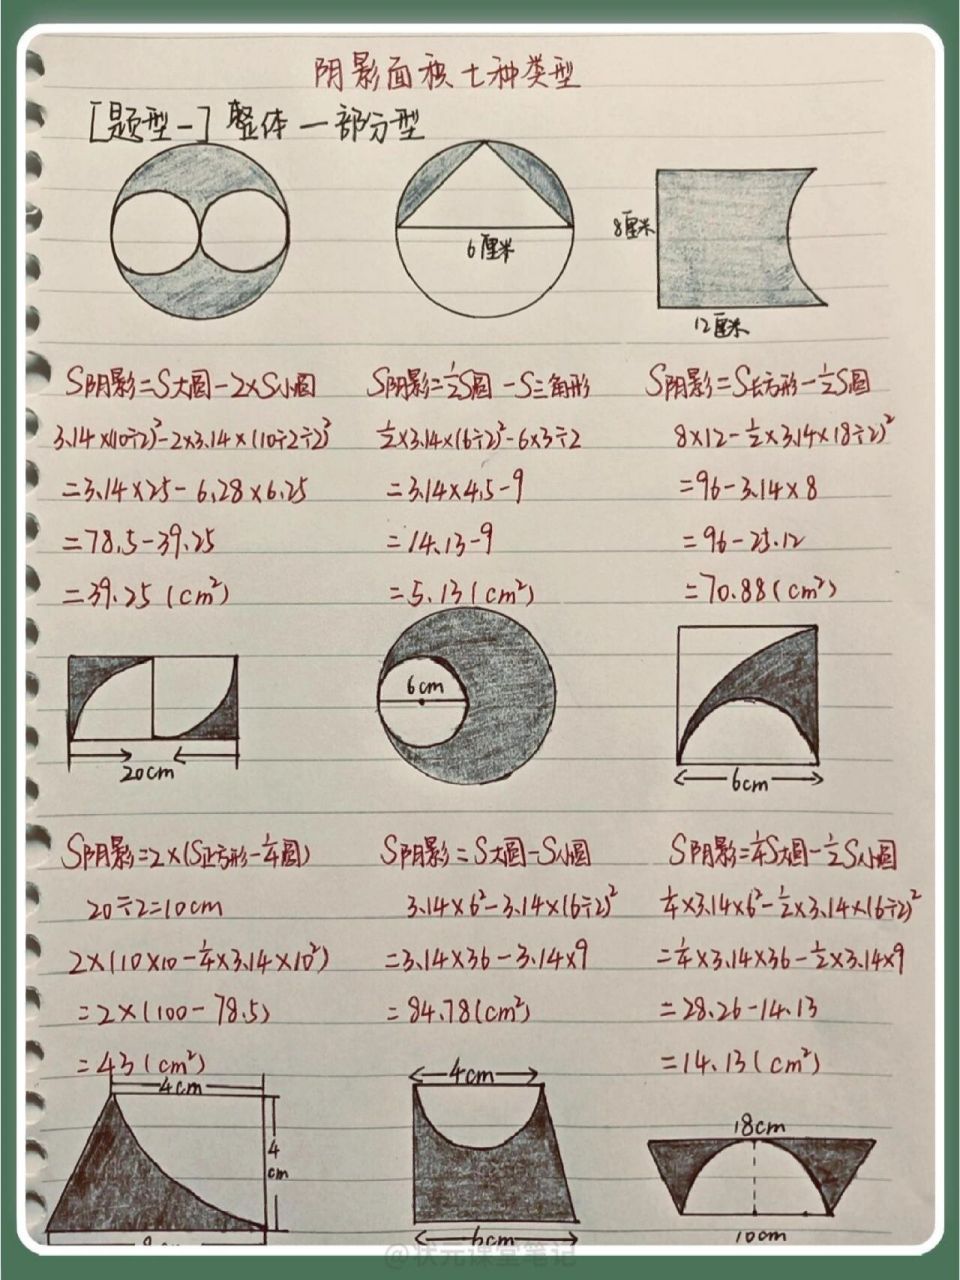 阴影面积七种类型
[题型一] 整体一部分型
6厘米
8厘米
12厘米
S阴影=S大圆-2×S小圆
3.14×(10÷2)²-2×3.14×(10÷2÷2)²
=3.14×25-6.28×6.25
=78.5-39.25
=39.25(cm²)
S阴影=½S圆-S三角形
½×3.14×(6÷2)²-6×3÷2
=3.14×4.5-9
=14.13-9
=5.13(cm²)
S阴影=S长方形-½S圆
8×12-½×3.14×(8÷2)²
=96-3.14×8
=96-25.12
=70.88(cm²)
20cm
6cm
6cm
S阴影=2×(S正方形-¼圆)
20÷2=10cm
2×(10×10-¼×3.14×10²)
=2×(100-78.5)
=43(cm²)
S阴影=S大圆-S小圆
3.14×6²-3.14×(6÷2)²
=3.14×36-3.14×9
=84.78(cm²)
S阴影=¼S大圆-½S小圆
¼×3.14×6²-½×3.14×(6÷2)²
=¼×3.14×36-½×3.14×9
=28.26-14.13
=14.13(cm²)
4cm
4
cm
4cm
6cm
18cm
10cm
@状元课堂笔记